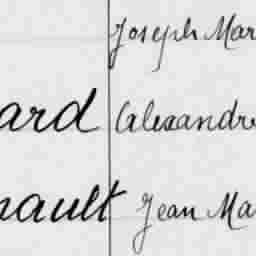 Joseph Mar
ard Alexandre
nault Jean Ma